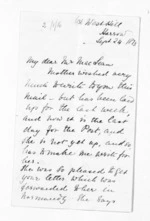 Harrow
Sept 24
My dear Mr McLean
Mother wished very
much to write to you this
mail - but has been laid
up for the last week,
and now it is the last
day for the Post, and
she is not yet up, and so
has to make me write for
her.
She was so pleased to get
your letter which was
forwarded to her in
Normandy She says